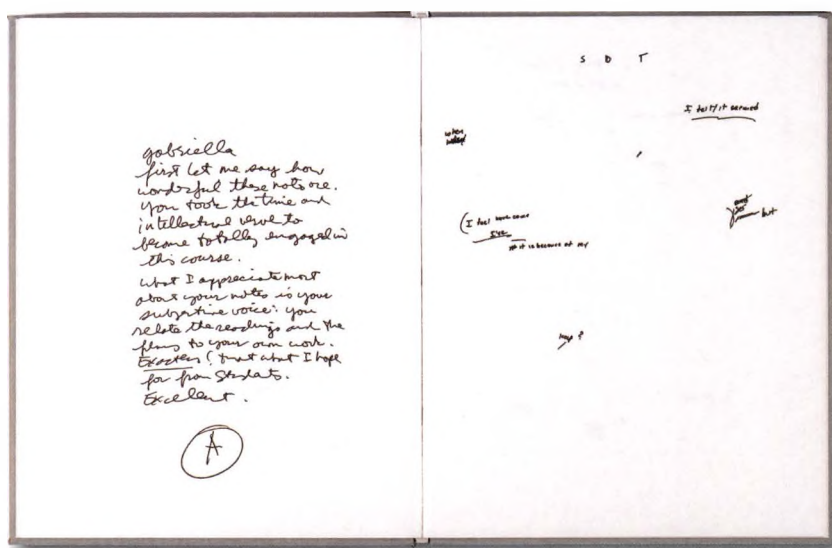 gabriella
first let me say how
wonderful these notes are.
you took the time and
intellectual verve to
become totally engaged in
this course.
what I appreciate most
about your notes is your
subjective voice: you
relate the readings and the
films to your own work.
Exactly! that what I hope
for from students.
Excellent.
A
S D T
when
(I feel
it is because of my
but